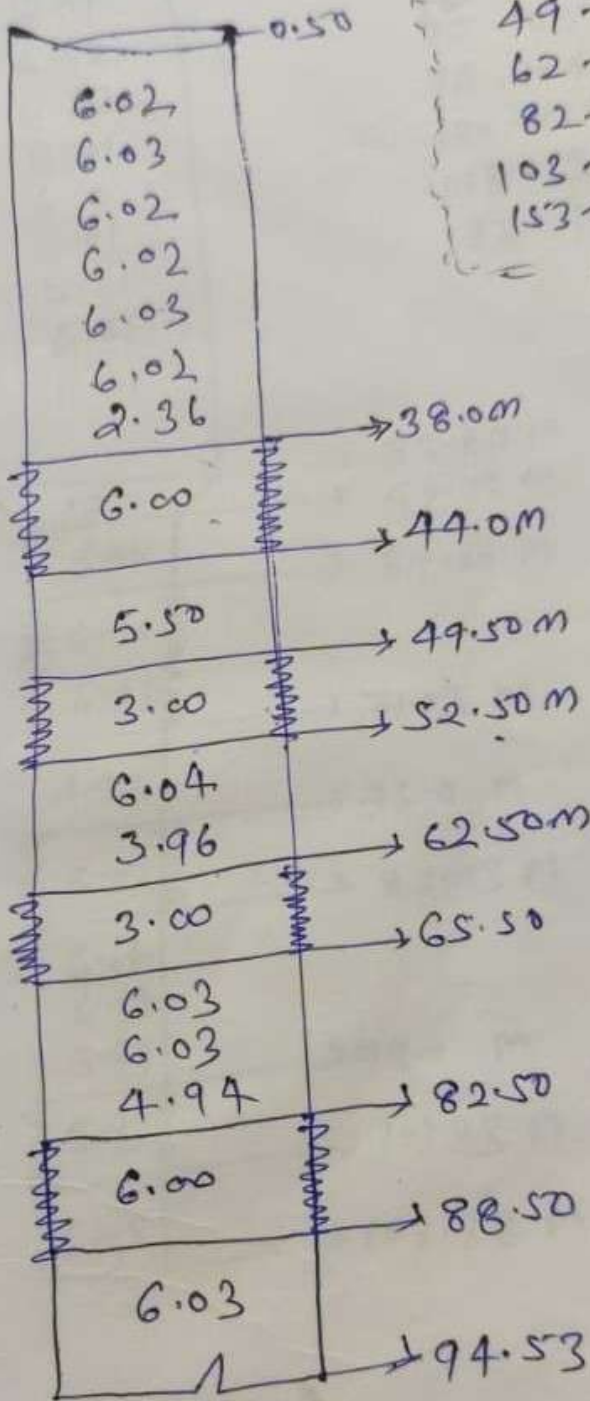 0.50
49-
62-
82-
103-
153-
6.02
6.03
6.02
6.02
6.03
6.02
2.36
38.0m
6.00
44.0m
5.50
49.50m
3.00
52.50m
6.04
3.96
62.50m
3.00
65.50
6.03
6.03
4.94
82.50
6.00
88.50
6.03
94.53